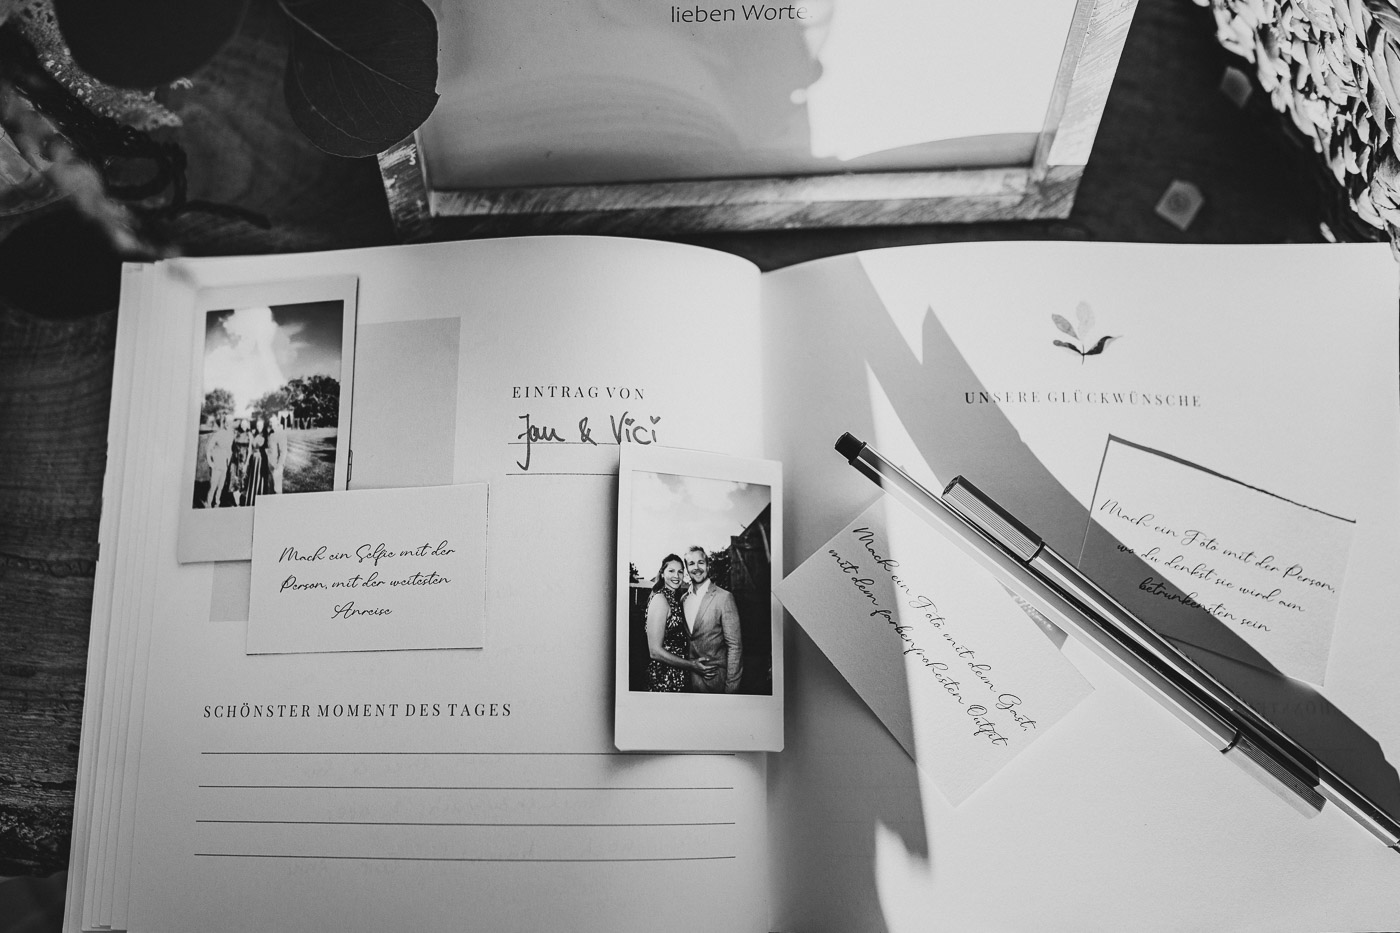 lieben Worte.
EINTRAG VON
Jan & Vici
Mach ein Selfie mit der
Person, mit der weitesten
Anreise
SCHÖNSTER MOMENT DES TAGES
UNSERE GLÜCKWÜNSCHE
Mach ein Foto mit der Person,
wo du denkst sie wird am
betrunkensten sein
Mach ein Foto mit dem Gast,
mit dem farbenfrohesten Outfit